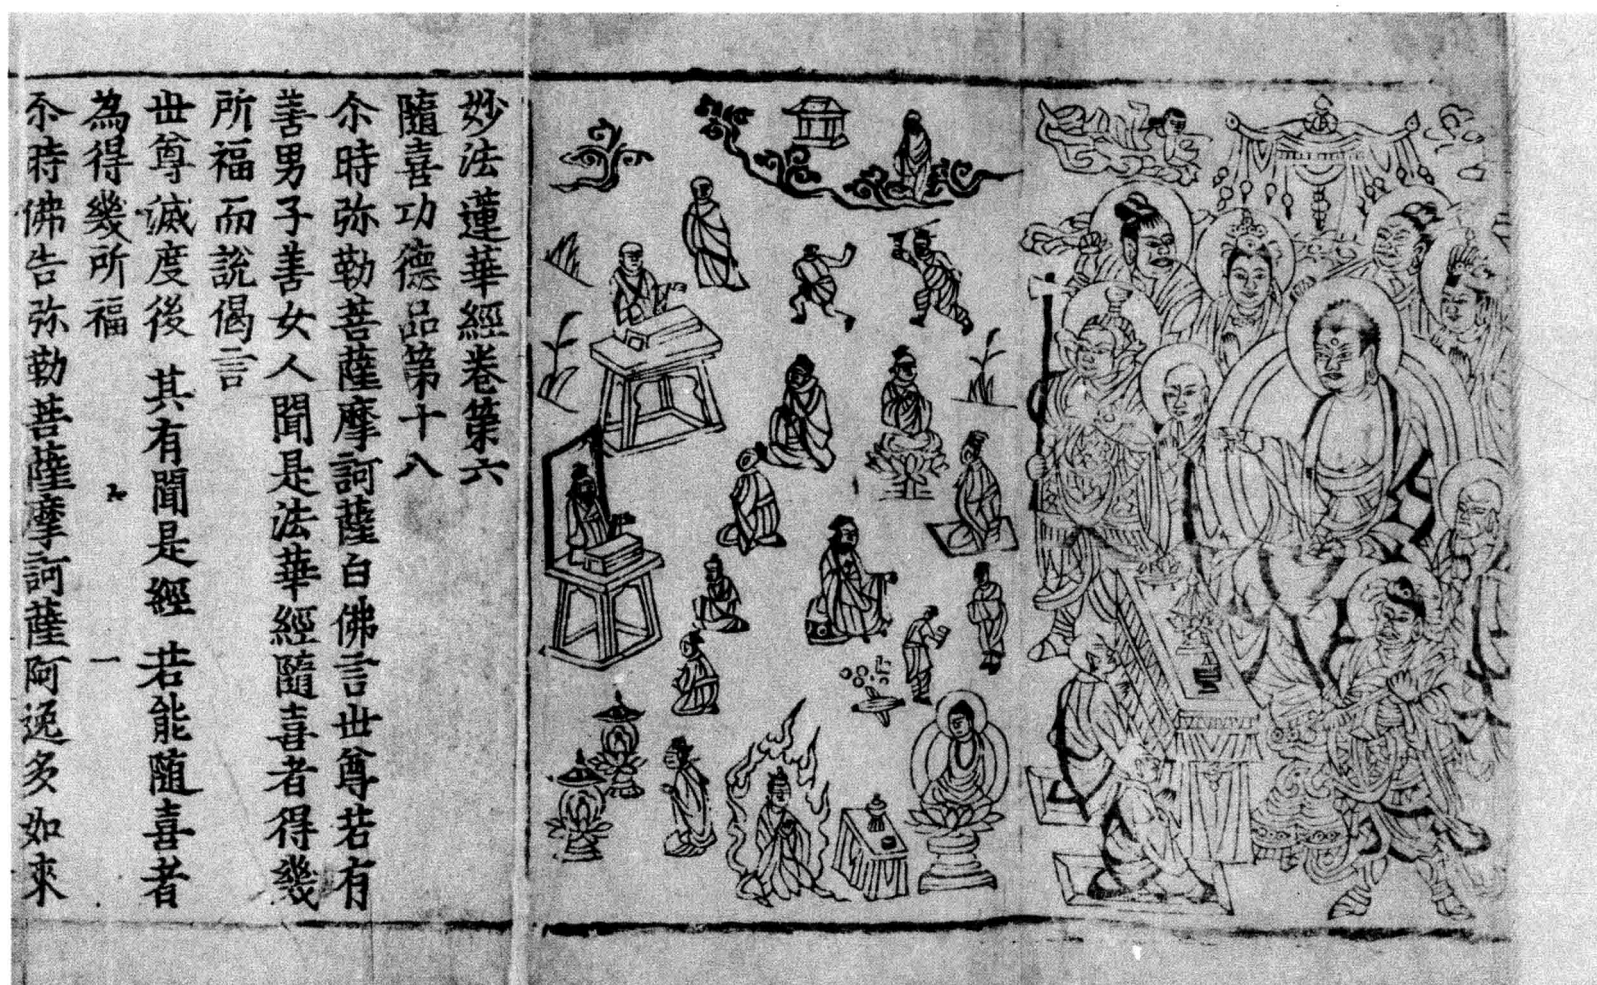 妙法蓮華經卷第六
隨喜功德品第十八
尒時弥勒菩薩摩訶薩白佛言世尊若有
善男子善女人聞是法華經隨喜者得幾
所福而說偈言
世尊滅度後 其有聞是經 若能随喜者
為得幾所福
一
尒時佛告弥勒菩薩摩訶薩阿逸多如來